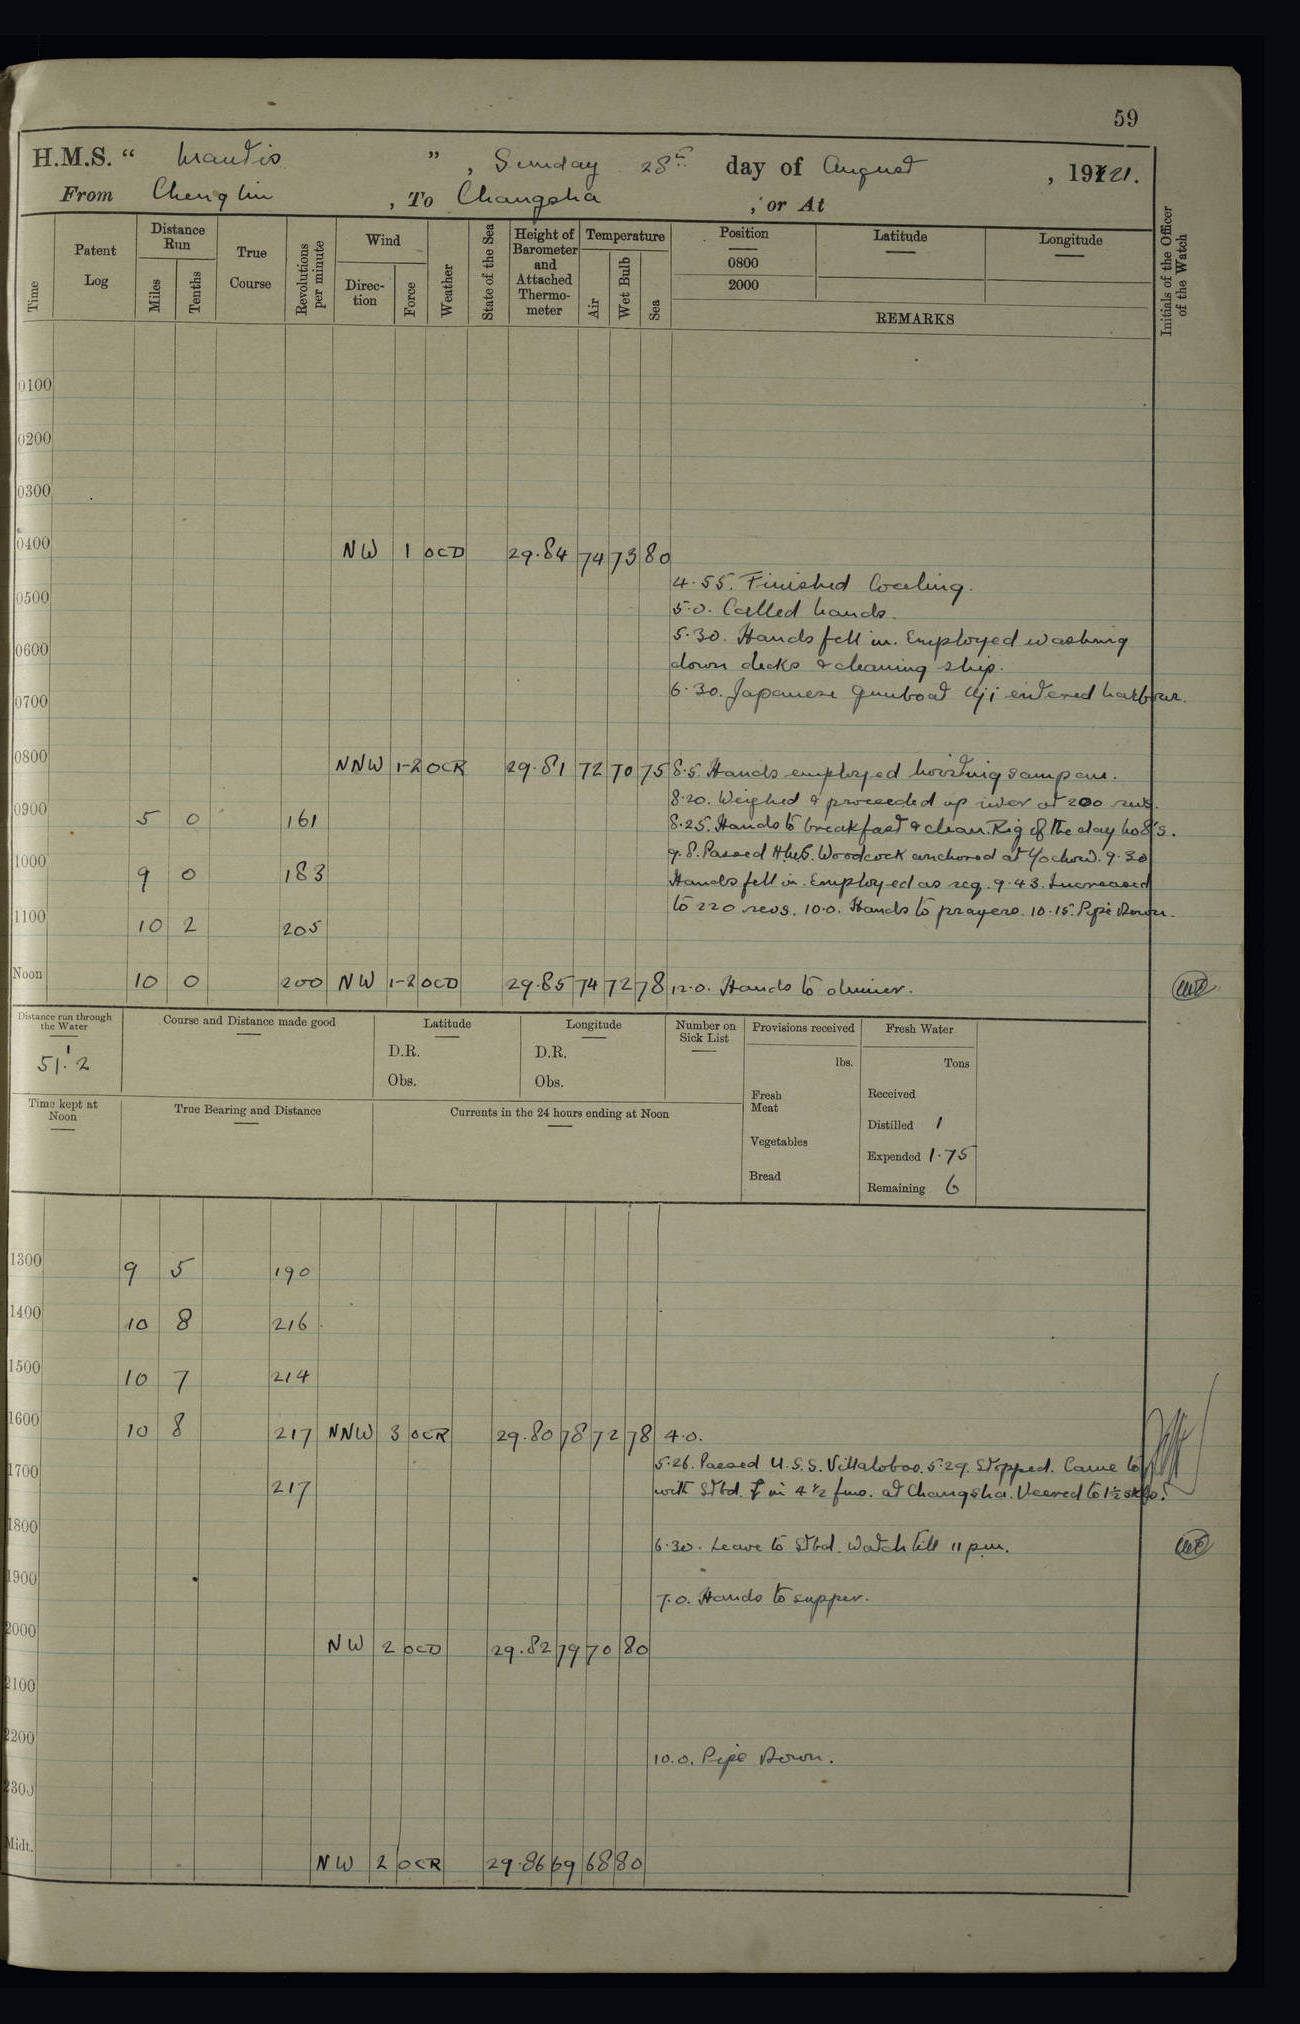 59
H.M.S. " Mantis ", Sunday 28th day of August, 1921.
From Chenglin, To Changsha, or At
Time
Patent Log
Distance Run
Miles
Tenths
True Course
Revolutions per minute
Wind
Direction
Force
Weather
State of the Sea
Height of Barometer and Attached Thermometer
Temperature
Air
Wet Bulb
Sea
Position
0800
2000
Latitude
Longitude
REMARKS
Initials of the Officer of the Watch
0100
0200
0300
0400 NW 1 OCD 29.84 74 73 80
4.55. Finished Coaling.
0500
5.0. Called hands.
5.30. Hands fell in. Employed washing
0600
down decks & cleaning ship.
6.30. Japanese gunboat Uji entered harbour.
0700
0800 NNW 1-2 OCR 29.81 72 70 75 8.5. Hands employed hoisting sampan.
8.20. Weighed & proceeded up river at 200 revs.
0900 5 0 161 8.25. Hands to breakfast & clean. Rig of the day No 8's.
9.8. Passed H.M.S. Woodcock anchored at Yochow. 9.30
1000 9 0 183 Hands fell in. Employed as req. 9.43. Increased
to 220 revs. 10.0. Hands to prayers. 10.15. Pipe Down.
1100 10 2 205
Noon 10 0 200 NW 1-2 OCD 29.85 74 72 78 12.0. Hands to dinner.
Distance run through the Water
51.2
Course and Distance made good
Latitude
D.R.
Obs.
Longitude
D.R.
Obs.
Number on Sick List
Provisions received
lbs.
Fresh Meat
Vegetables
Bread
Fresh Water
Tons
Received
Distilled 1
Expended 1.75
Remaining 6
Time kept at Noon
True Bearing and Distance
Currents in the 24 hours ending at Noon
1300 9 5 190
1400 10 8 216
1500 10 7 214
1600 10 8 217 NNW 3 OCR 29.80 78 72 78 4.0.
5.26. Passed U.S.S. Villalobos. 5.29. Stopped. Came to
1700 217 with Stbd. in 4 1/2 fms. at Changsha. Veered to 1 1/2
1800
6.30. Leave to Stbd. Watch till 11 p.m.
1900
7.0. Hands to supper.
2000 NW 2 OCD 29.82 79 70 80
2100
2200
10.0. Pipe Down.
2300
Midt. NW 2 OCR 29.86 69 68 80